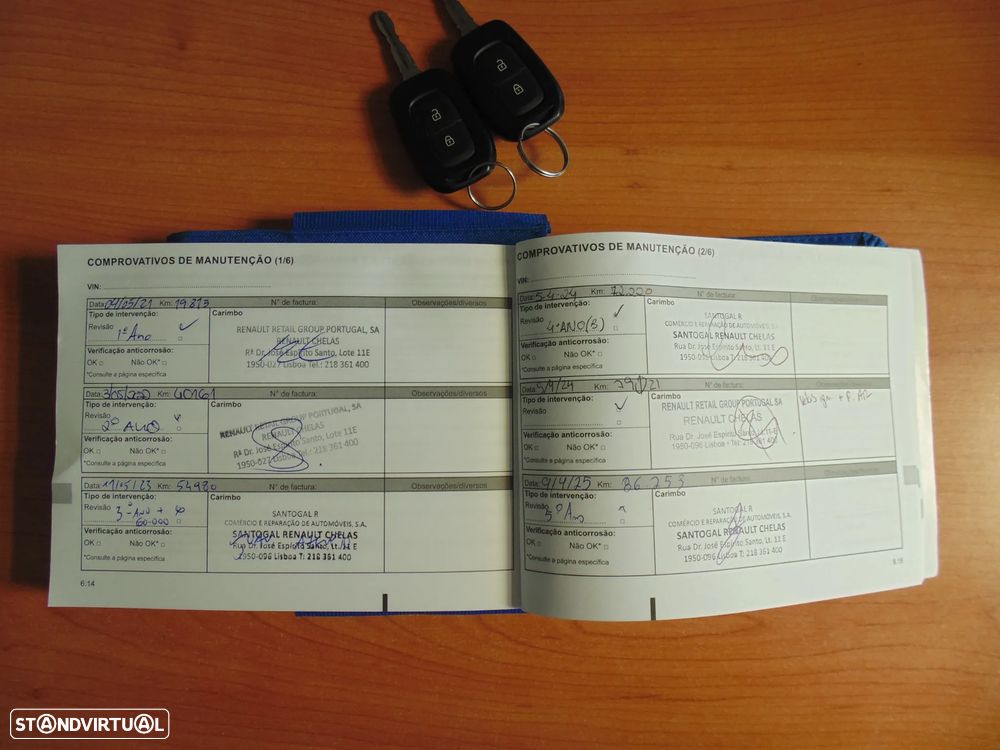 COMPROVATIVOS DE MANUTENÇÃO (1/6)
VIN:
Data: 04/05/21 Km: 19.813 N° de factura: Observações/diversos
Tipo de intervenção: Carimbo
Revisão
1º Ano
RENAULT RETAIL GROUP PORTUGAL, SA
RENAULT CHELAS
Rª Dr. José Espírito Santo, Lote 11E
1950-027 Lisboa Tel.: 218 361 400
Verificação anticorrosão:
OK Não OK*
*Consulte a página específica
Km: N° de factura: Observações/diversos
Tipo de intervenção: Carimbo
Revisão
2º ANO
RENAULT RETAIL GROUP PORTUGAL, SA
RENAULT CHELAS
Rª Dr. José Espírito Santo, Lote 11E
1950-027 Lisboa Tel.: 218 361 400
Verificação anticorrosão:
OK Não OK*
*Consulte a página específica
Data: 11/05/23 Km: 54980 N° de factura: Observações/diversos
Tipo de intervenção: Carimbo
Revisão
3º Ano +
60.000
SANTOGAL R
COMÉRCIO E REPARAÇÃO DE AUTOMÓVEIS, S.A.
SANTOGAL RENAULT CHELAS
Rua Dr. José Espírito Santo, Lt. 11 E
1950-096 Lisboa T: 218 361 400
Verificação anticorrosão:
OK Não OK*
*Consulte a página específica
6.14
COMPROVATIVOS DE MANUTENÇÃO (2/6)
VIN:
Data: 5-4-24 Km: 72.000 N° de factura:
Tipo de intervenção: Carimbo
Revisão
4º ANO (B)
SANTOGAL R
COMÉRCIO E REPARAÇÃO DE AUTOMÓVEIS, S.A.
SANTOGAL RENAULT CHELAS
Rua Dr. José Espírito Santo, Lt. 11 E
1950-096 Lisboa T: 218 361 400
Verificação anticorrosão:
OK Não OK*
*Consulte a página específica
Data: 5/9/24 Km: N° de factura:
Tipo de intervenção: Carimbo
Revisão
RENAULT RETAIL GROUP PORTUGAL SA
RENAULT CHELAS
Rua Dr. José Espírito Santo, Lt. 11-E
1950-096 Lisboa • Tel.: 218 361 400
Verificação anticorrosão:
OK Não OK*
*Consulte a página específica
Data: 9/4/25 Km: 86.253 N° de factura:
Tipo de intervenção: Carimbo
Revisão
5º Ano
SANTOGAL R
COMÉRCIO E REPARAÇÃO DE AUTOMÓVEIS, S.A.
SANTOGAL RENAULT CHELAS
Rua Dr. José Espírito Santo, Lt. 11 E
1950-096 Lisboa T: 218 361 400
Verificação anticorrosão:
OK Não OK*
*Consulte a página específica
6.15
STANDVIRTUAL